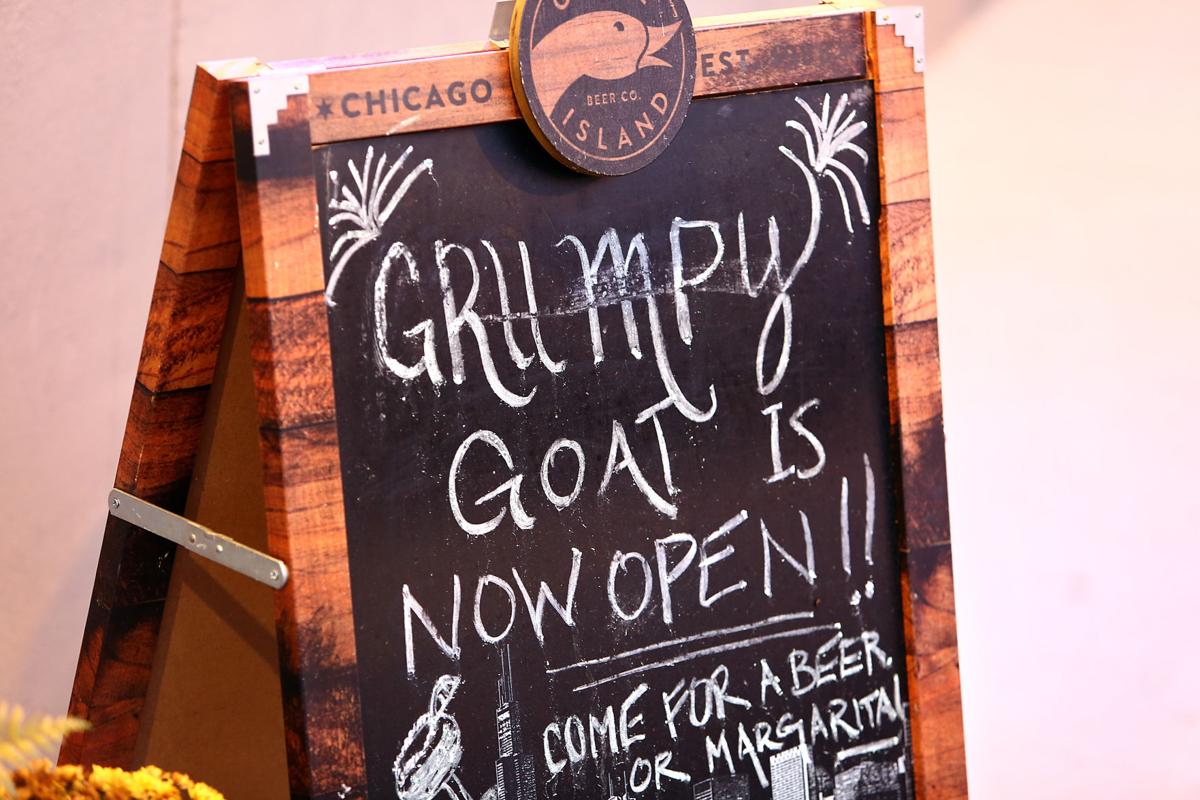 CHICAGO
EST
BEER CO.
ISLAND
GRUMPY
GOAT IS
NOW OPEN!!
COME FOR A BEER
OR MARGARITA!